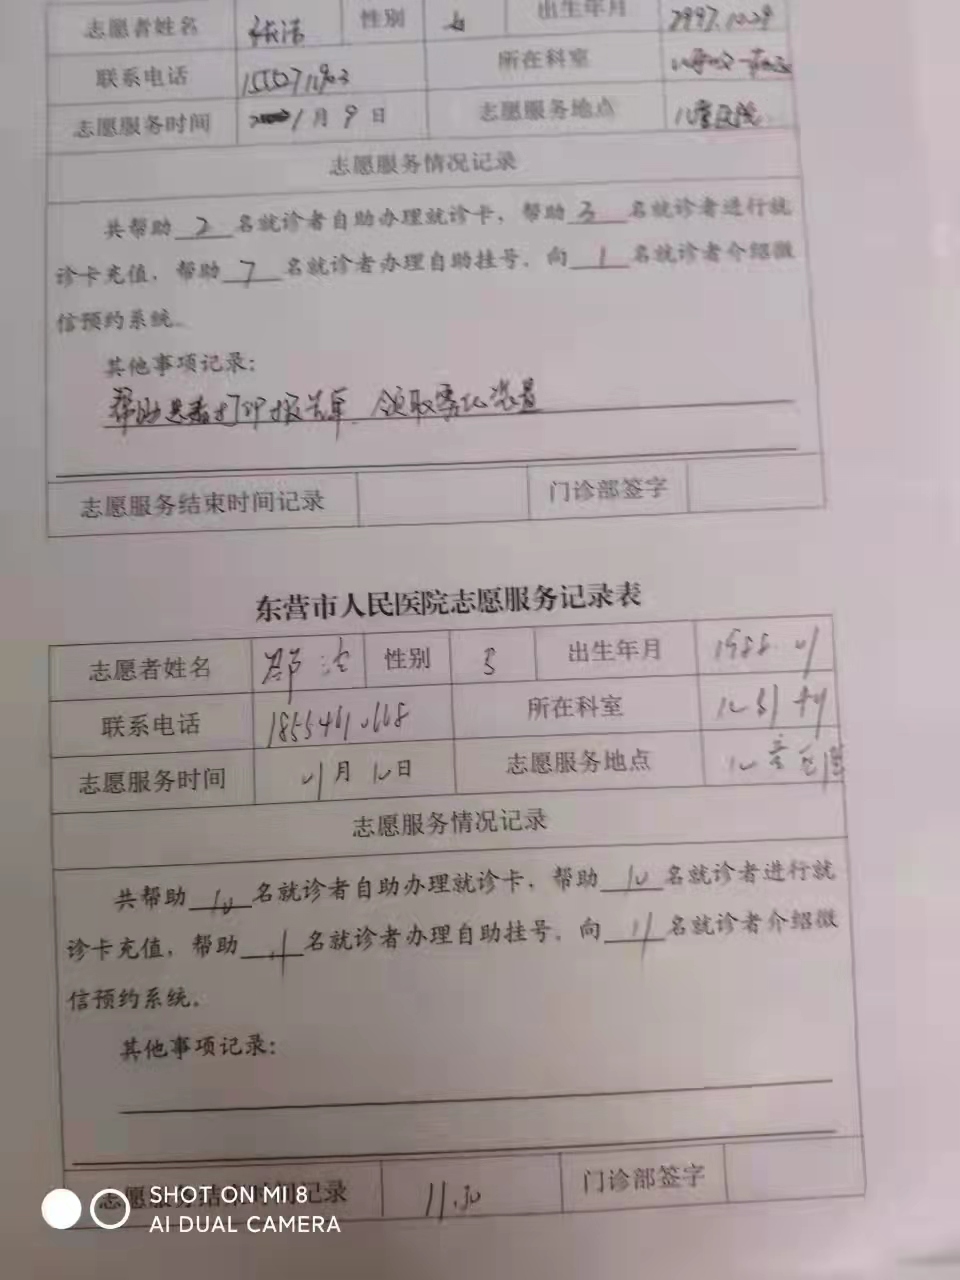 志愿者姓名 性别 女 出生年月 1997.10.29
联系电话 所在科室
志愿服务时间 1月9日 志愿服务地点 儿童医院
志愿服务情况记录
共帮助 2 名就诊者自助办理就诊卡，帮助 3 名就诊者进行就
诊卡充值，帮助 7 名就诊者办理自助挂号，向 1 名就诊者介绍微
信预约系统。
其他事项记录：
帮助患者打印报告单、领取雾化装置
志愿服务结束时间记录 门诊部签字
东营市人民医院志愿服务记录表
志愿者姓名 性别 出生年月
联系电话 所在科室
志愿服务时间 月10日 志愿服务地点
志愿服务情况记录
共帮助 10 名就诊者自助办理就诊卡，帮助 10 名就诊者进行就
诊卡充值，帮助 名就诊者办理自助挂号，向 名就诊者介绍微
信预约系统。
其他事项记录：
志愿服务结束时间记录 11.30 门诊部签字
SHOT ON MI 8
AI DUAL CAMERA